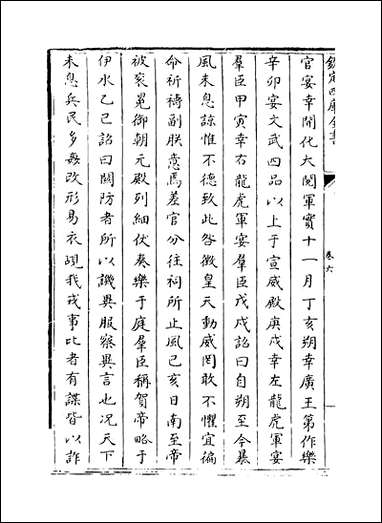 欽定四庫全書
卷六
官宴幸開化大閱軍實十一月丁亥朔幸廣王第作樂
辛卯宴文武四品以上于宣威殿庚戌幸左龍虎軍宴
羣臣甲寅幸右龍虎軍宴羣臣戊戌詔曰自朔至今暴
風未息諒惟不德致此咎徵皇天動威罔敢不懼宜徧
命祈禱副朕意焉差官分往祠所止風己亥日南至帝
被衮冕御朝元殿列細仗奏樂于庭羣臣稱賀帝畋于
伊水乙巳詔曰關防者所以譏異服察異言也况天下
未息兵民多姦改形易衣覘我戎事比者有諜皆以詐